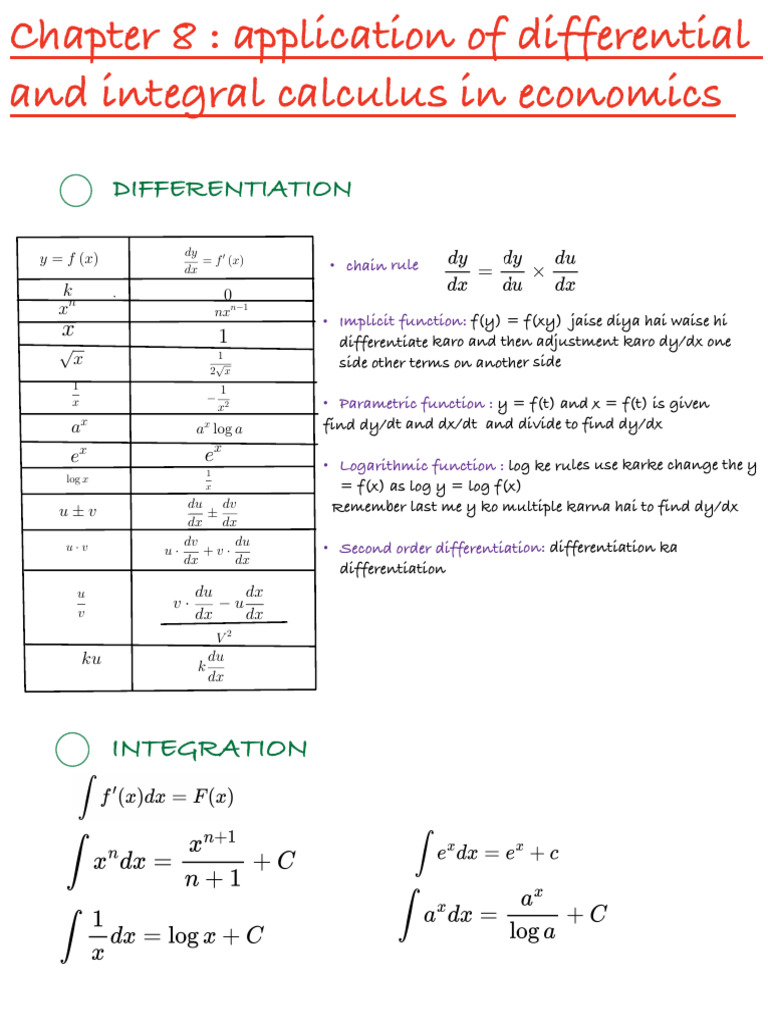 Chapter 8 : application of differential
and integral calculus in economics
DIFFERENTIATION
y = f (x) dy/dx = f′ (x)
k 0
xⁿ nxⁿ⁻¹
x 1
√x 1/(2√x)
1/x −1/x²
aˣ aˣ log a
eˣ eˣ
log x 1/x
u ± v du/dx ± dv/dx
u · v u · dv/dx + v · du/dx
u/v (v · du/dx − u dx/dx)/V²
ku k du/dx
• chain rule dy/dx = dy/du × du/dx
• Implicit function: f(y) = f(xy) jaise diya hai waise hi
differentiate karo and then adjustment karo dy/dx one
side other terms on another side
• Parametric function : y = f(t) and x = f(t) is given
find dy/dt and dx/dt and divide to find dy/dx
• Logarithmic function : log ke rules use karke change the y
= f(x) as log y = log f(x)
Remember last me y ko multiple karna hai to find dy/dx
• Second order differentiation: differentiation ka
differentiation
INTEGRATION
∫ f′(x)dx = F(x)
∫ xⁿdx = xⁿ⁺¹/(n + 1) + C
∫ 1/x dx = log x + C
∫ eˣdx = eˣ + c
∫ aˣdx = aˣ/log a + C